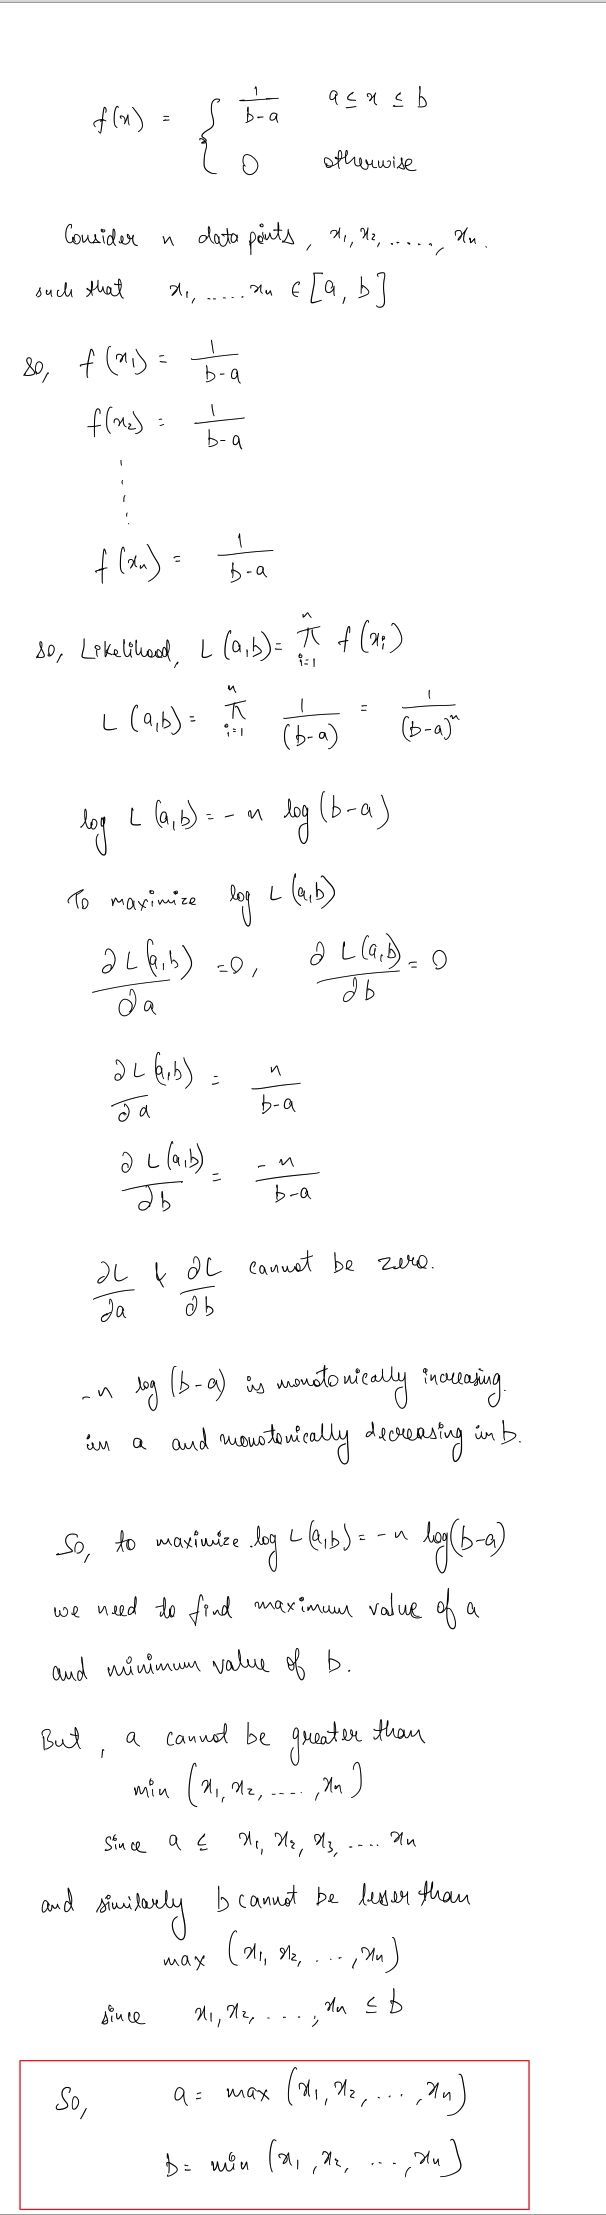 f(x) = { 1/(b-a)   a ≤ x ≤ b
0   otherwise
Consider n data points, x₁, x₂, ....., xₙ.
such that x₁, ..... xₙ ∈ [a, b]
So, f(x₁) = 1/(b-a)
f(x₂) = 1/(b-a)
⋮
f(xₙ) = 1/(b-a)
So, Likelihood, L(a,b) = π_{i=1}^{n} f(xᵢ)
L(a,b) = π_{i=1}^{n} 1/(b-a) = 1/(b-a)ⁿ
log L(a,b) = -n log(b-a)
To maximize log L(a,b)
∂L(a,b)/∂a = 0, ∂L(a,b)/∂b = 0
∂L(a,b)/∂a = n/(b-a)
∂L(a,b)/∂b = -n/(b-a)
∂L/∂a & ∂L/∂b cannot be zero.
-n log(b-a) is monotonically increasing.
in a and monotonically decreasing in b.
So, to maximize log L(a,b) = -n log(b-a)
we need to find maximum value of a
and minimum value of b.
But, a cannot be greater than
min (x₁, x₂, ...., xₙ)
since a ≤ x₁, x₂, x₃, .... xₙ
and similarly b cannot be lesser than
max (x₁, x₂, ..., xₙ)
since x₁, x₂, ...., xₙ ≤ b
So, a = max (x₁, x₂, ..., xₙ)
b = min (x₁, x₂, ..., xₙ)